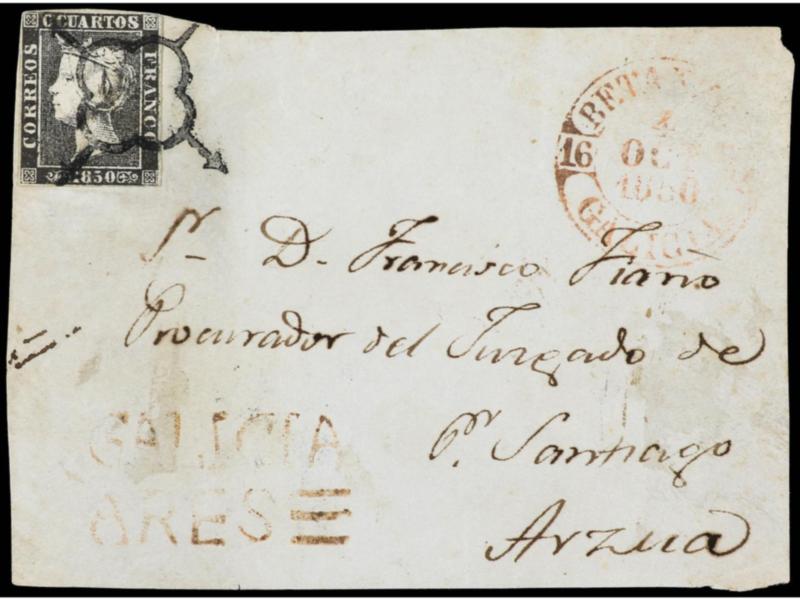 CUARTOS
CORREOS
FRANCO
1850
16
4
OCT
1850
GALICIA
Sr. D. Francisco Fiaño
Procurador del Juzgado de
Pr. Santiago
Arzua
GALICIA
ARES